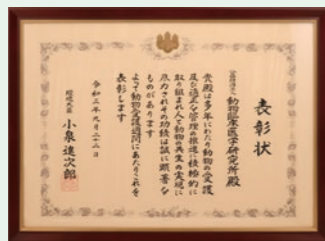 表彰状
公益財団法人
動物臨床医学研究所殿
貴殿は多年にわたり動物の愛護
及び適正な管理の推進に積極的に
取り組まれ人と動物の共生の実現に
尽力されその功績は誠に顕著な
ものがあります
よって動物愛護週間にあたりこれを
表彰します
令和三年九月二十二日
環境大臣
小泉進次郎